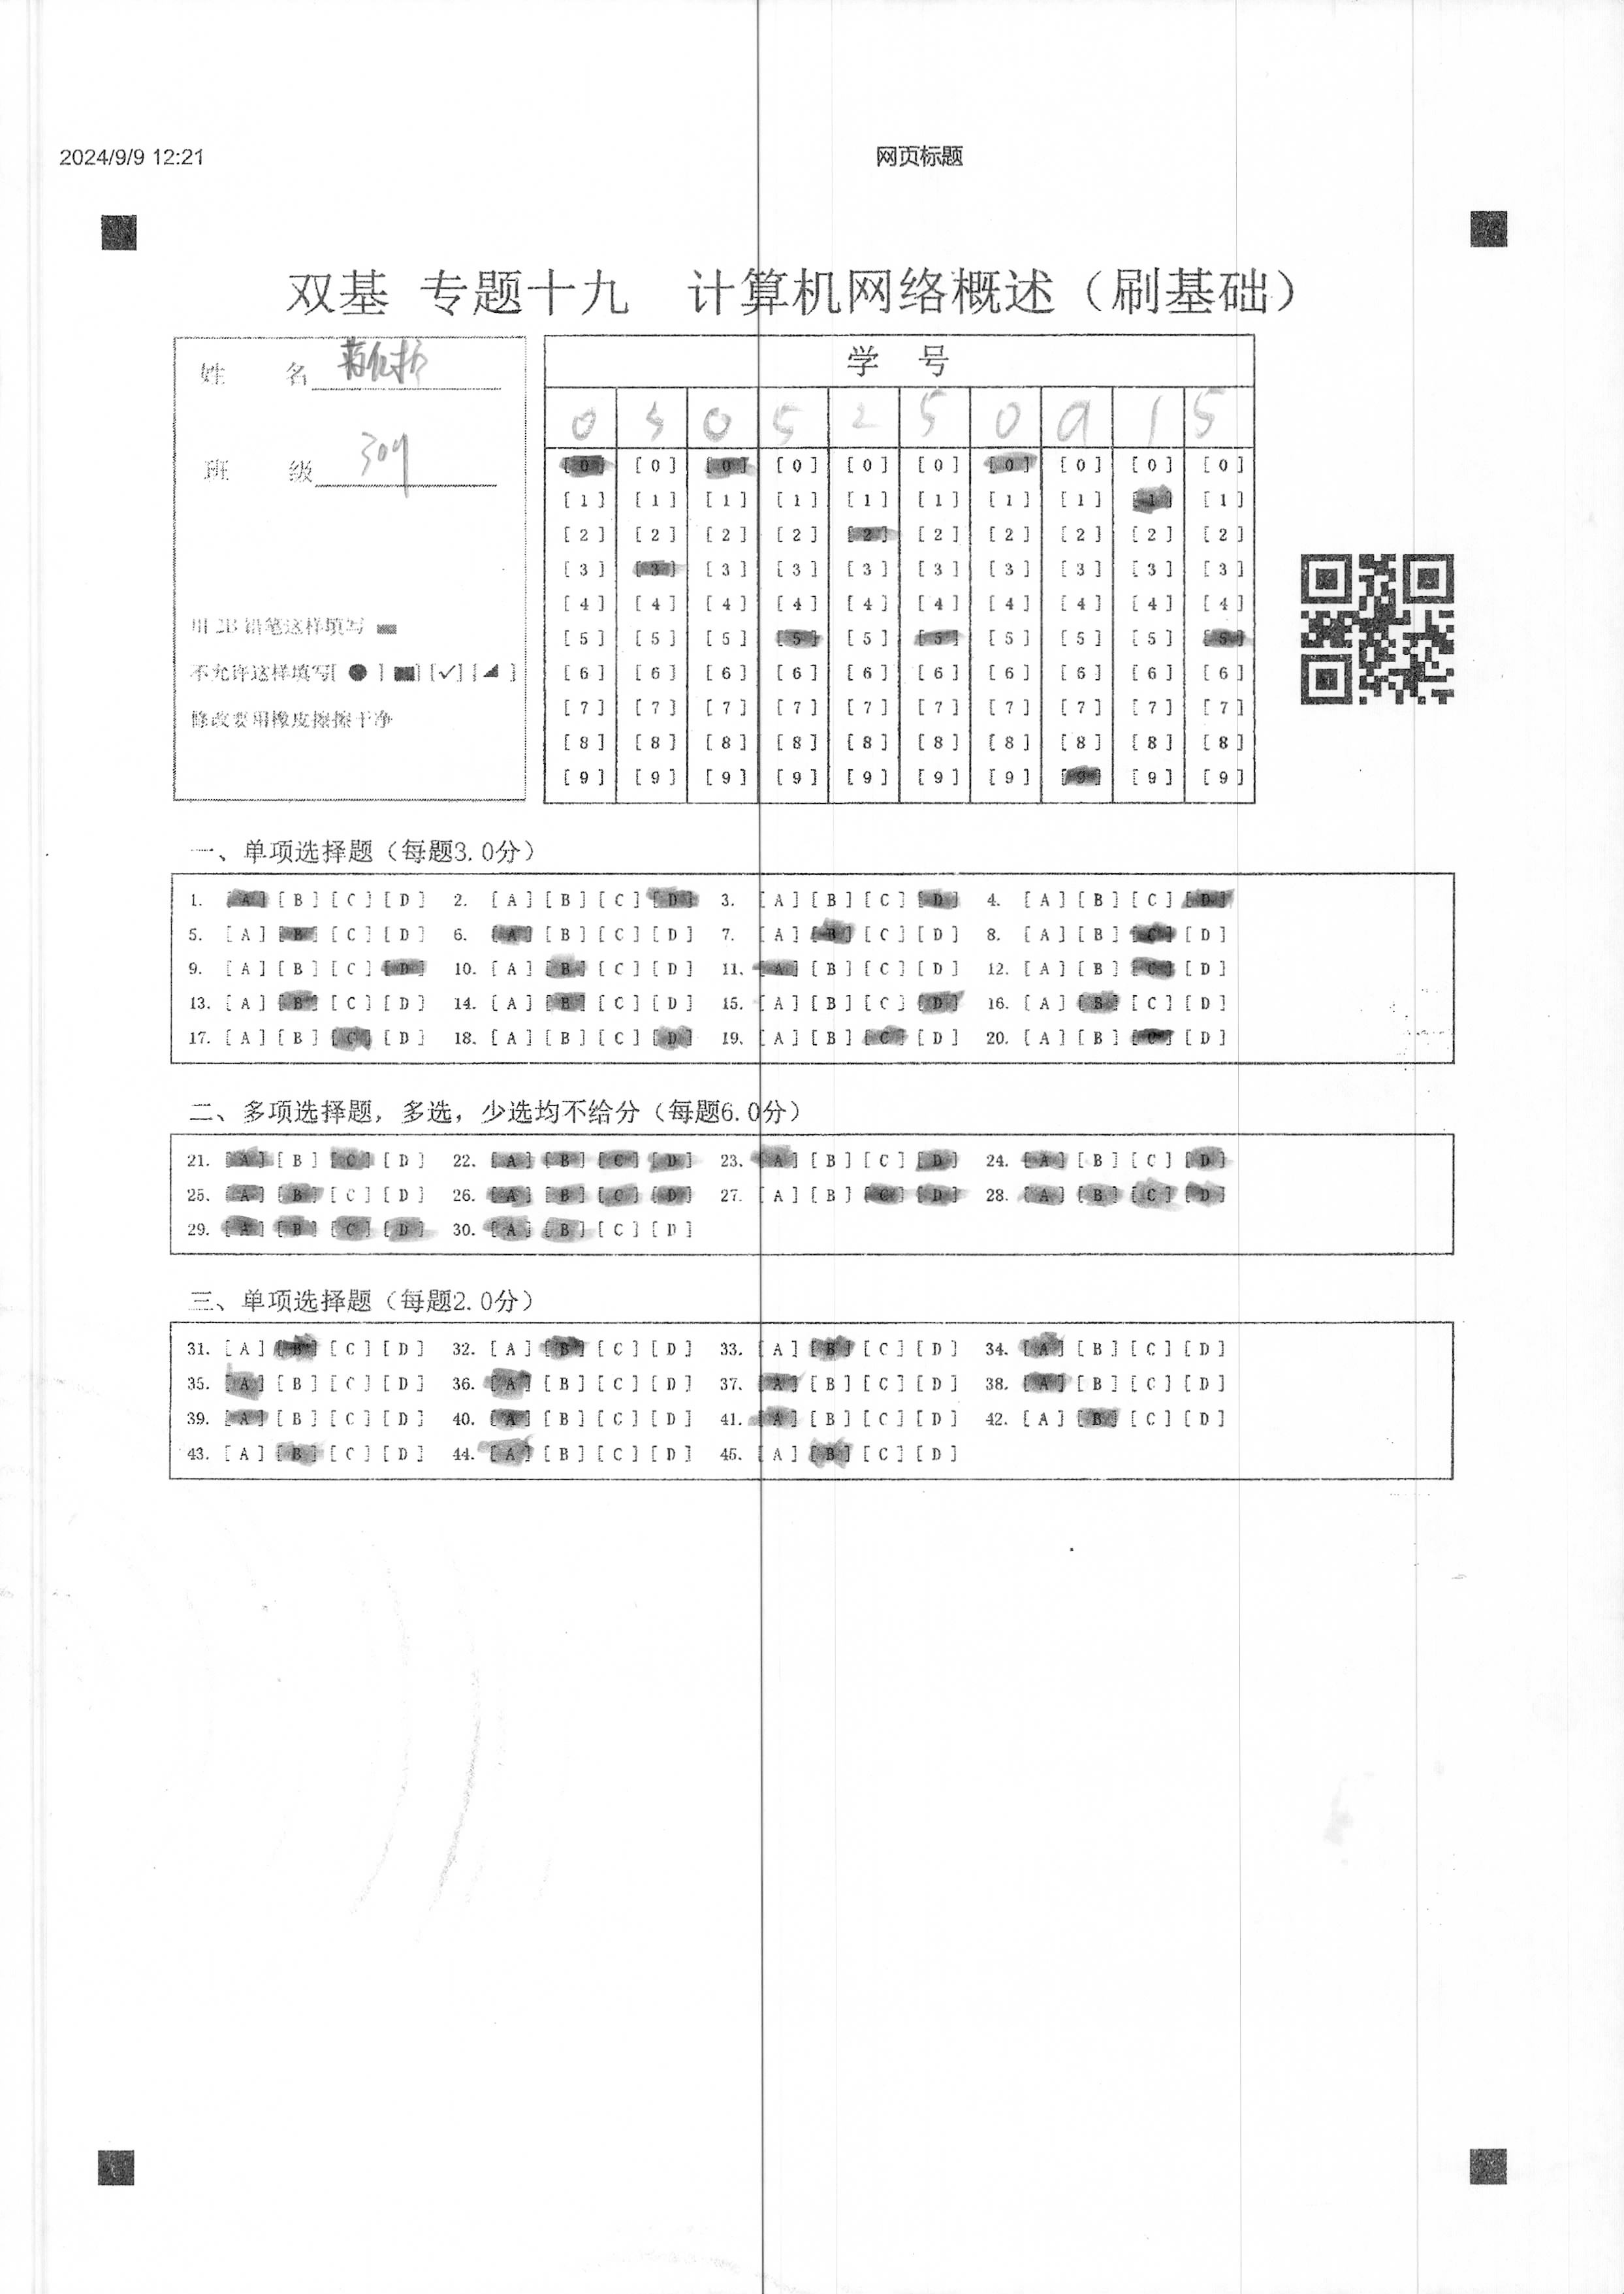 2024/9/9 12:21
网页标题
双基 专题十九 计算机网络概述（刷基础）
姓 名
班 级 309
用 2B 铅笔这样填写
不允许这样填写[ ● ] [■] [✓] [◢]
修改要用橡皮擦擦干净
学 号
0 3 0 5 2 5 0 9 1 5
[0] [0] [0] [0] [0] [0] [0] [0] [0] [0]
[1] [1] [1] [1] [1] [1] [1] [1] [1] [1]
[2] [2] [2] [2] [2] [2] [2] [2] [2] [2]
[3] [3] [3] [3] [3] [3] [3] [3] [3] [3]
[4] [4] [4] [4] [4] [4] [4] [4] [4] [4]
[5] [5] [5] [5] [5] [5] [5] [5] [5] [5]
[6] [6] [6] [6] [6] [6] [6] [6] [6] [6]
[7] [7] [7] [7] [7] [7] [7] [7] [7] [7]
[8] [8] [8] [8] [8] [8] [8] [8] [8] [8]
[9] [9] [9] [9] [9] [9] [9] [9] [9] [9]
一、单项选择题（每题3.0分）
1. [A] [B] [C] [D] 2. [A] [B] [C] [D] 3. [A] [B] [C] [D] 4. [A] [B] [C] [D]
5. [A] [B] [C] [D] 6. [A] [B] [C] [D] 7. [A] [B] [C] [D] 8. [A] [B] [C] [D]
9. [A] [B] [C] [D] 10. [A] [B] [C] [D] 11. [A] [B] [C] [D] 12. [A] [B] [C] [D]
13. [A] [B] [C] [D] 14. [A] [B] [C] [D] 15. [A] [B] [C] [D] 16. [A] [B] [C] [D]
17. [A] [B] [C] [D] 18. [A] [B] [C] [D] 19. [A] [B] [C] [D] 20. [A] [B] [C] [D]
二、多项选择题，多选，少选均不给分（每题6.0分）
21. [A] [B] [C] [D] 22. [A] [B] [C] [D] 23. [A] [B] [C] [D] 24. [A] [B] [C] [D]
25. [A] [B] [C] [D] 26. [A] [B] [C] [D] 27. [A] [B] [C] [D] 28. [A] [B] [C] [D]
29. [A] [B] [C] [D] 30. [A] [B] [C] [D]
三、单项选择题（每题2.0分）
31. [A] [B] [C] [D] 32. [A] [B] [C] [D] 33. [A] [B] [C] [D] 34. [A] [B] [C] [D]
35. [A] [B] [C] [D] 36. [A] [B] [C] [D] 37. [A] [B] [C] [D] 38. [A] [B] [C] [D]
39. [A] [B] [C] [D] 40. [A] [B] [C] [D] 41. [A] [B] [C] [D] 42. [A] [B] [C] [D]
43. [A] [B] [C] [D] 44. [A] [B] [C] [D] 45. [A] [B] [C] [D]